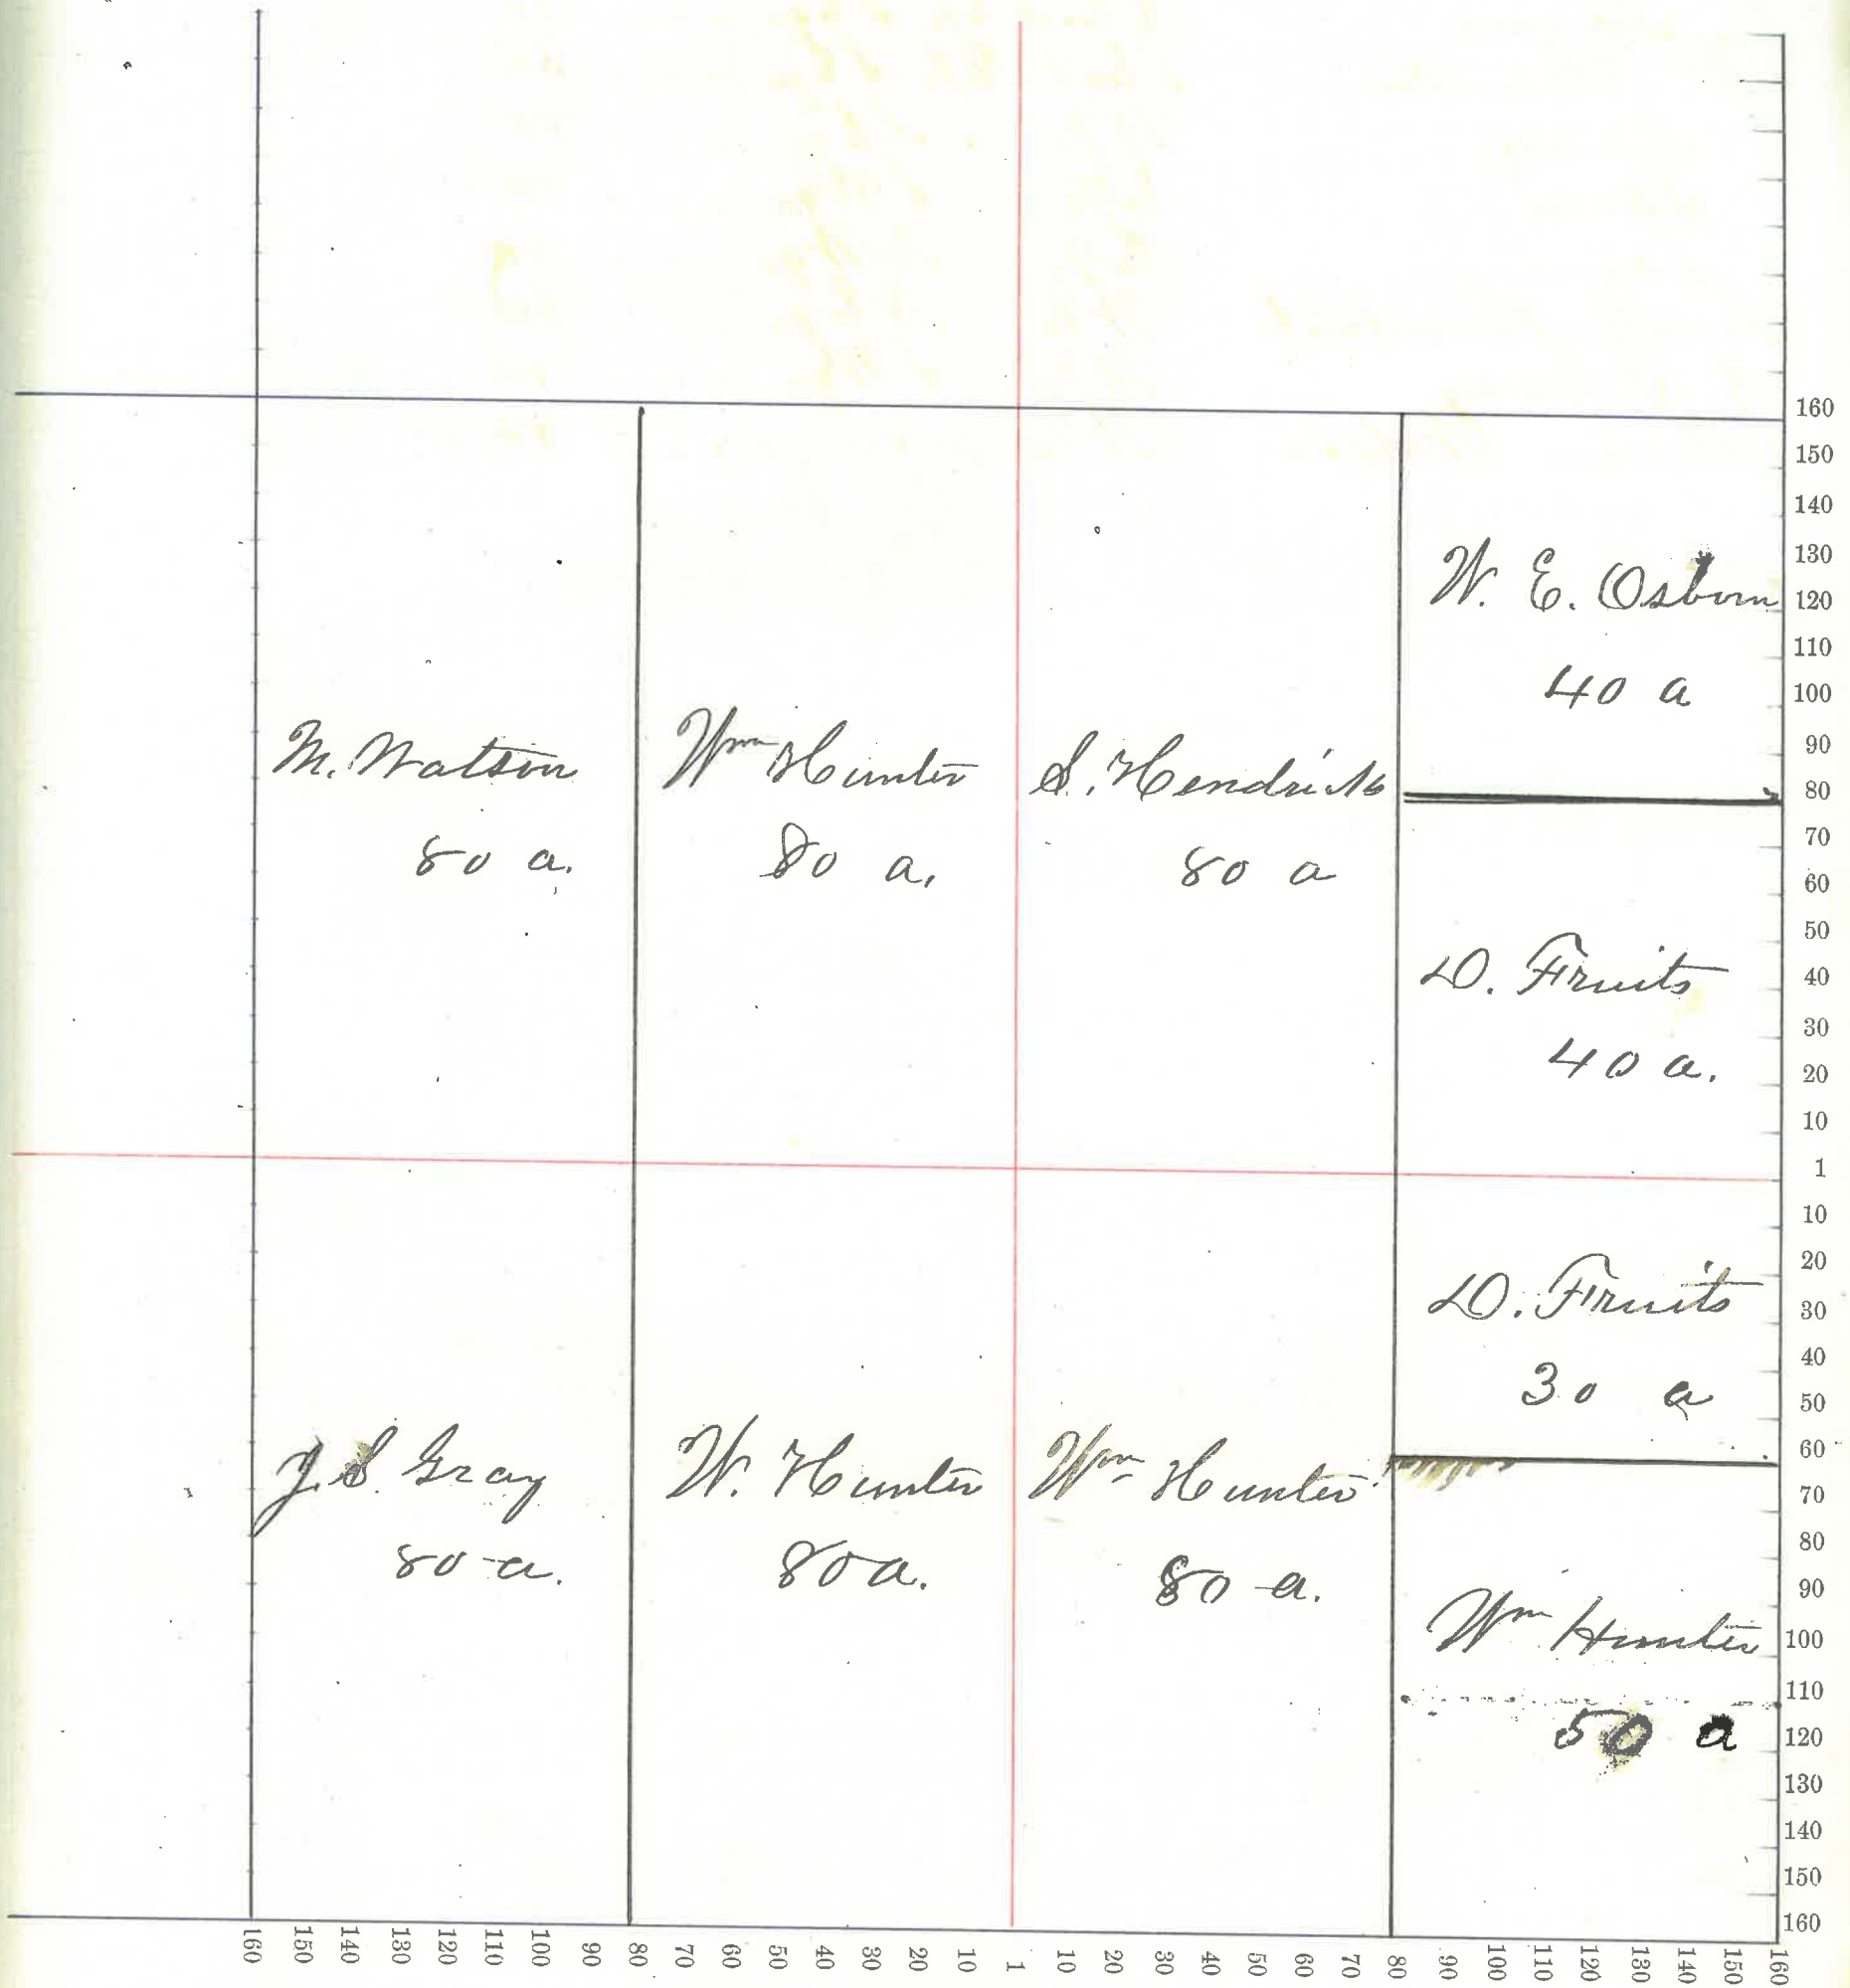 W. E. Osborn
40 a
M. Watson
80 a.
Wm Hunter
80 a.
S. Hendricks
80 a
D. Fruits
40 a.
D. Fruits
30 a
J. S Gray
80 a.
W. Hunter
80 a.
Wm Hunter
80 a.
Wm Hunter
50 a
160
150
140
130
120
110
100
90
80
70
60
50
40
30
20
10
1
10
20
30
40
50
60
70
80
90
100
110
120
130
140
150
160
160 150 140 130 120 110 100 90 80 70 60 50 40 30 20 10 1 10 20 30 40 50 60 70 80 90 100 110 120 130 140 150 160